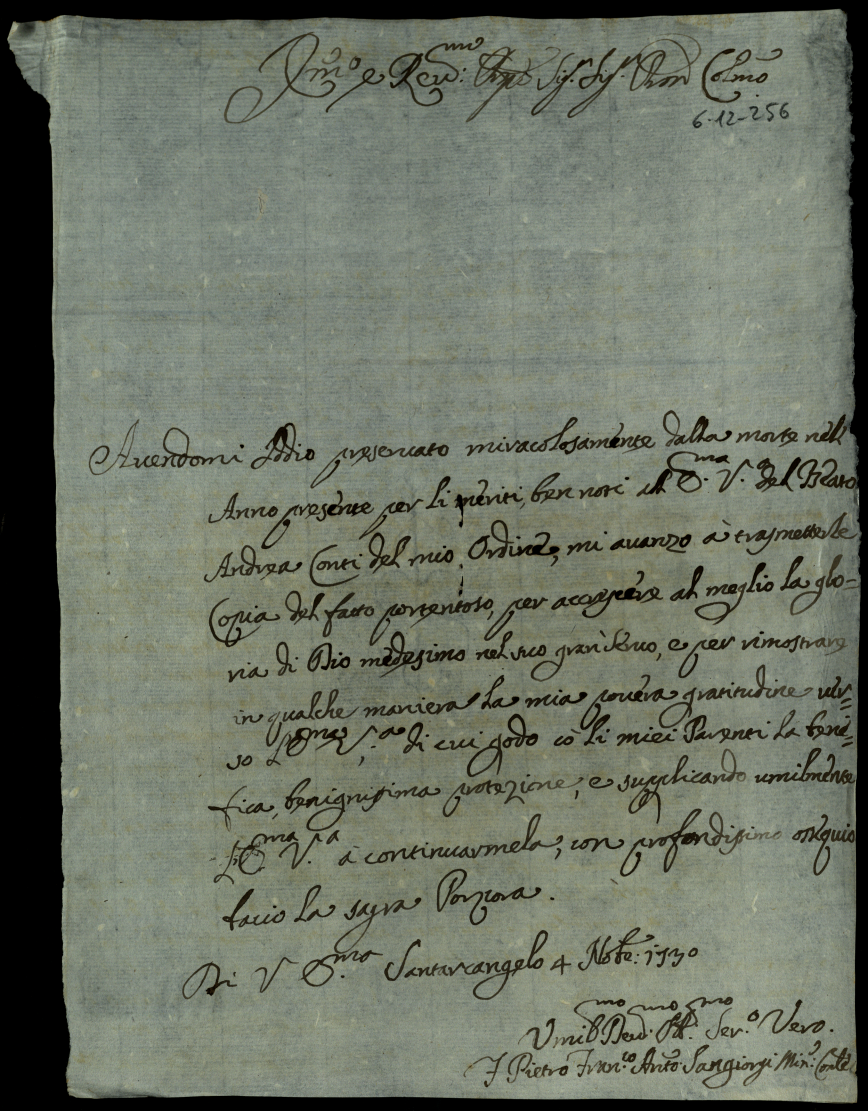 Em.º e Rev.mo Sig.r Sig.r Pron Colmo
6-12-256
Avendomi Iddio preservato miracolosamente dalla morte nell'
Anno presente per li meriti, ben noti all' E.ma V.a del Beato
Andrea Conti del mio Ordine, mi avanzo à trasmetterle
Copia del fatto portentoso, per accrescere al meglio la glo=
ria di Dio medesimo nel suo gran Servo, e per rimostrare
in qualche maniera la mia povera gratitudine ver=
so l'E.ma V.a di cui godo cò li miei Parenti la bene=
fica, benignissima protezione, e supplicando umilmente
l'E.ma V.a à continuarmela, con profondissimo ossequio
bacio la sagra Porpora.
Di V E.ma Santarcangelo 4 Nobre: 1730
Umil.mo Dev.mo Obl.mo Ser.o Vero.
F Pietro Fran.co Anto: Sangiorgi Min: Conle